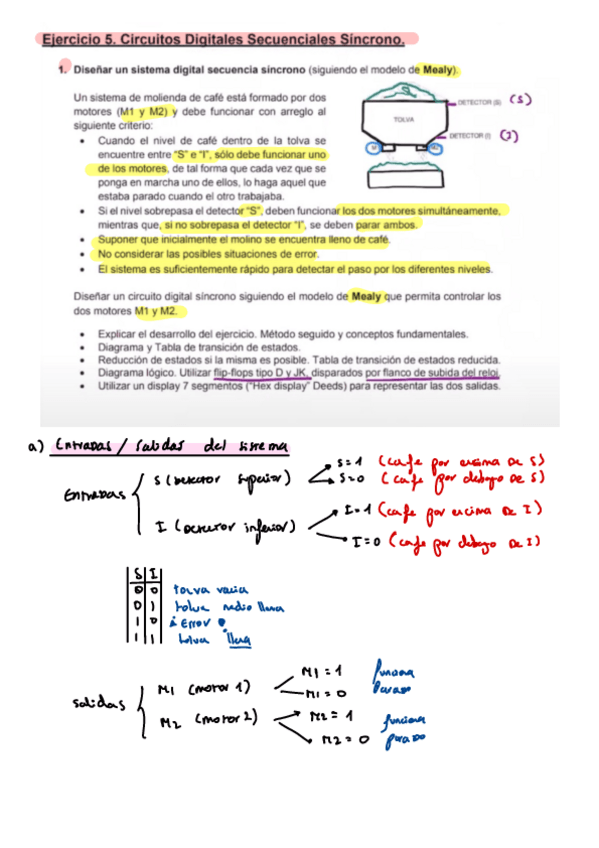 Ejercicio 5. Circuitos Digitales Secuenciales Síncrono.
1. Diseñar un sistema digital secuencia síncrono (siguiendo el modelo de Mealy).
Un sistema de molienda de café está formado por dos
motores (M1 y M2) y debe funcionar con arreglo al
siguiente criterio:
• Cuando el nivel de café dentro de la tolva se
encuentre entre "S" e "I", sólo debe funcionar uno
de los motores, de tal forma que cada vez que se
ponga en marcha uno de ellos, lo haga aquel que
estaba parado cuando el otro trabajaba.
TOLVA
DETECTOR (S) (S)
DETECTOR (I) (I)
• Si el nivel sobrepasa el detector "S", deben funcionar los dos motores simultáneamente,
mientras que, si no sobrepasa el detector "I", se deben parar ambos.
• Suponer que inicialmente el molino se encuentra lleno de café.
• No considerar las posibles situaciones de error.
• El sistema es suficientemente rápido para detectar el paso por los diferentes niveles.
Diseñar un circuito digital síncrono siguiendo el modelo de Mealy que permita controlar los
dos motores M1 y M2.
• Explicar el desarrollo del ejercicio. Método seguido y conceptos fundamentales.
• Diagrama y Tabla de transición de estados.
• Reducción de estados si la misma es posible. Tabla de transición de estados reducida.
• Diagrama lógico. Utilizar flip-flops tipo D y JK, disparados por flanco de subida del reloj.
• Utilizar un display 7 segmentos ("Hex display" Deeds) para representar las dos salidas.
a) Entradas / salidas del sistema
Entradas
S (detector superior)
S=1 (cafe por encima de S)
S=0 (cafe por debajo de S)
I (detector inferior)
I=1 (cafe por encima de I)
I=0 (cafe por debajo de I)
S I
0 0 tolva vacia
0 1 tolva medio llena
1 0 Error
1 1 tolva llena
Salidas
M1 (motor 1)
M1 = 1 funciona
M1 = 0 parado
M2 (motor 2)
M2 = 1 funciona
M2 = 0 parado